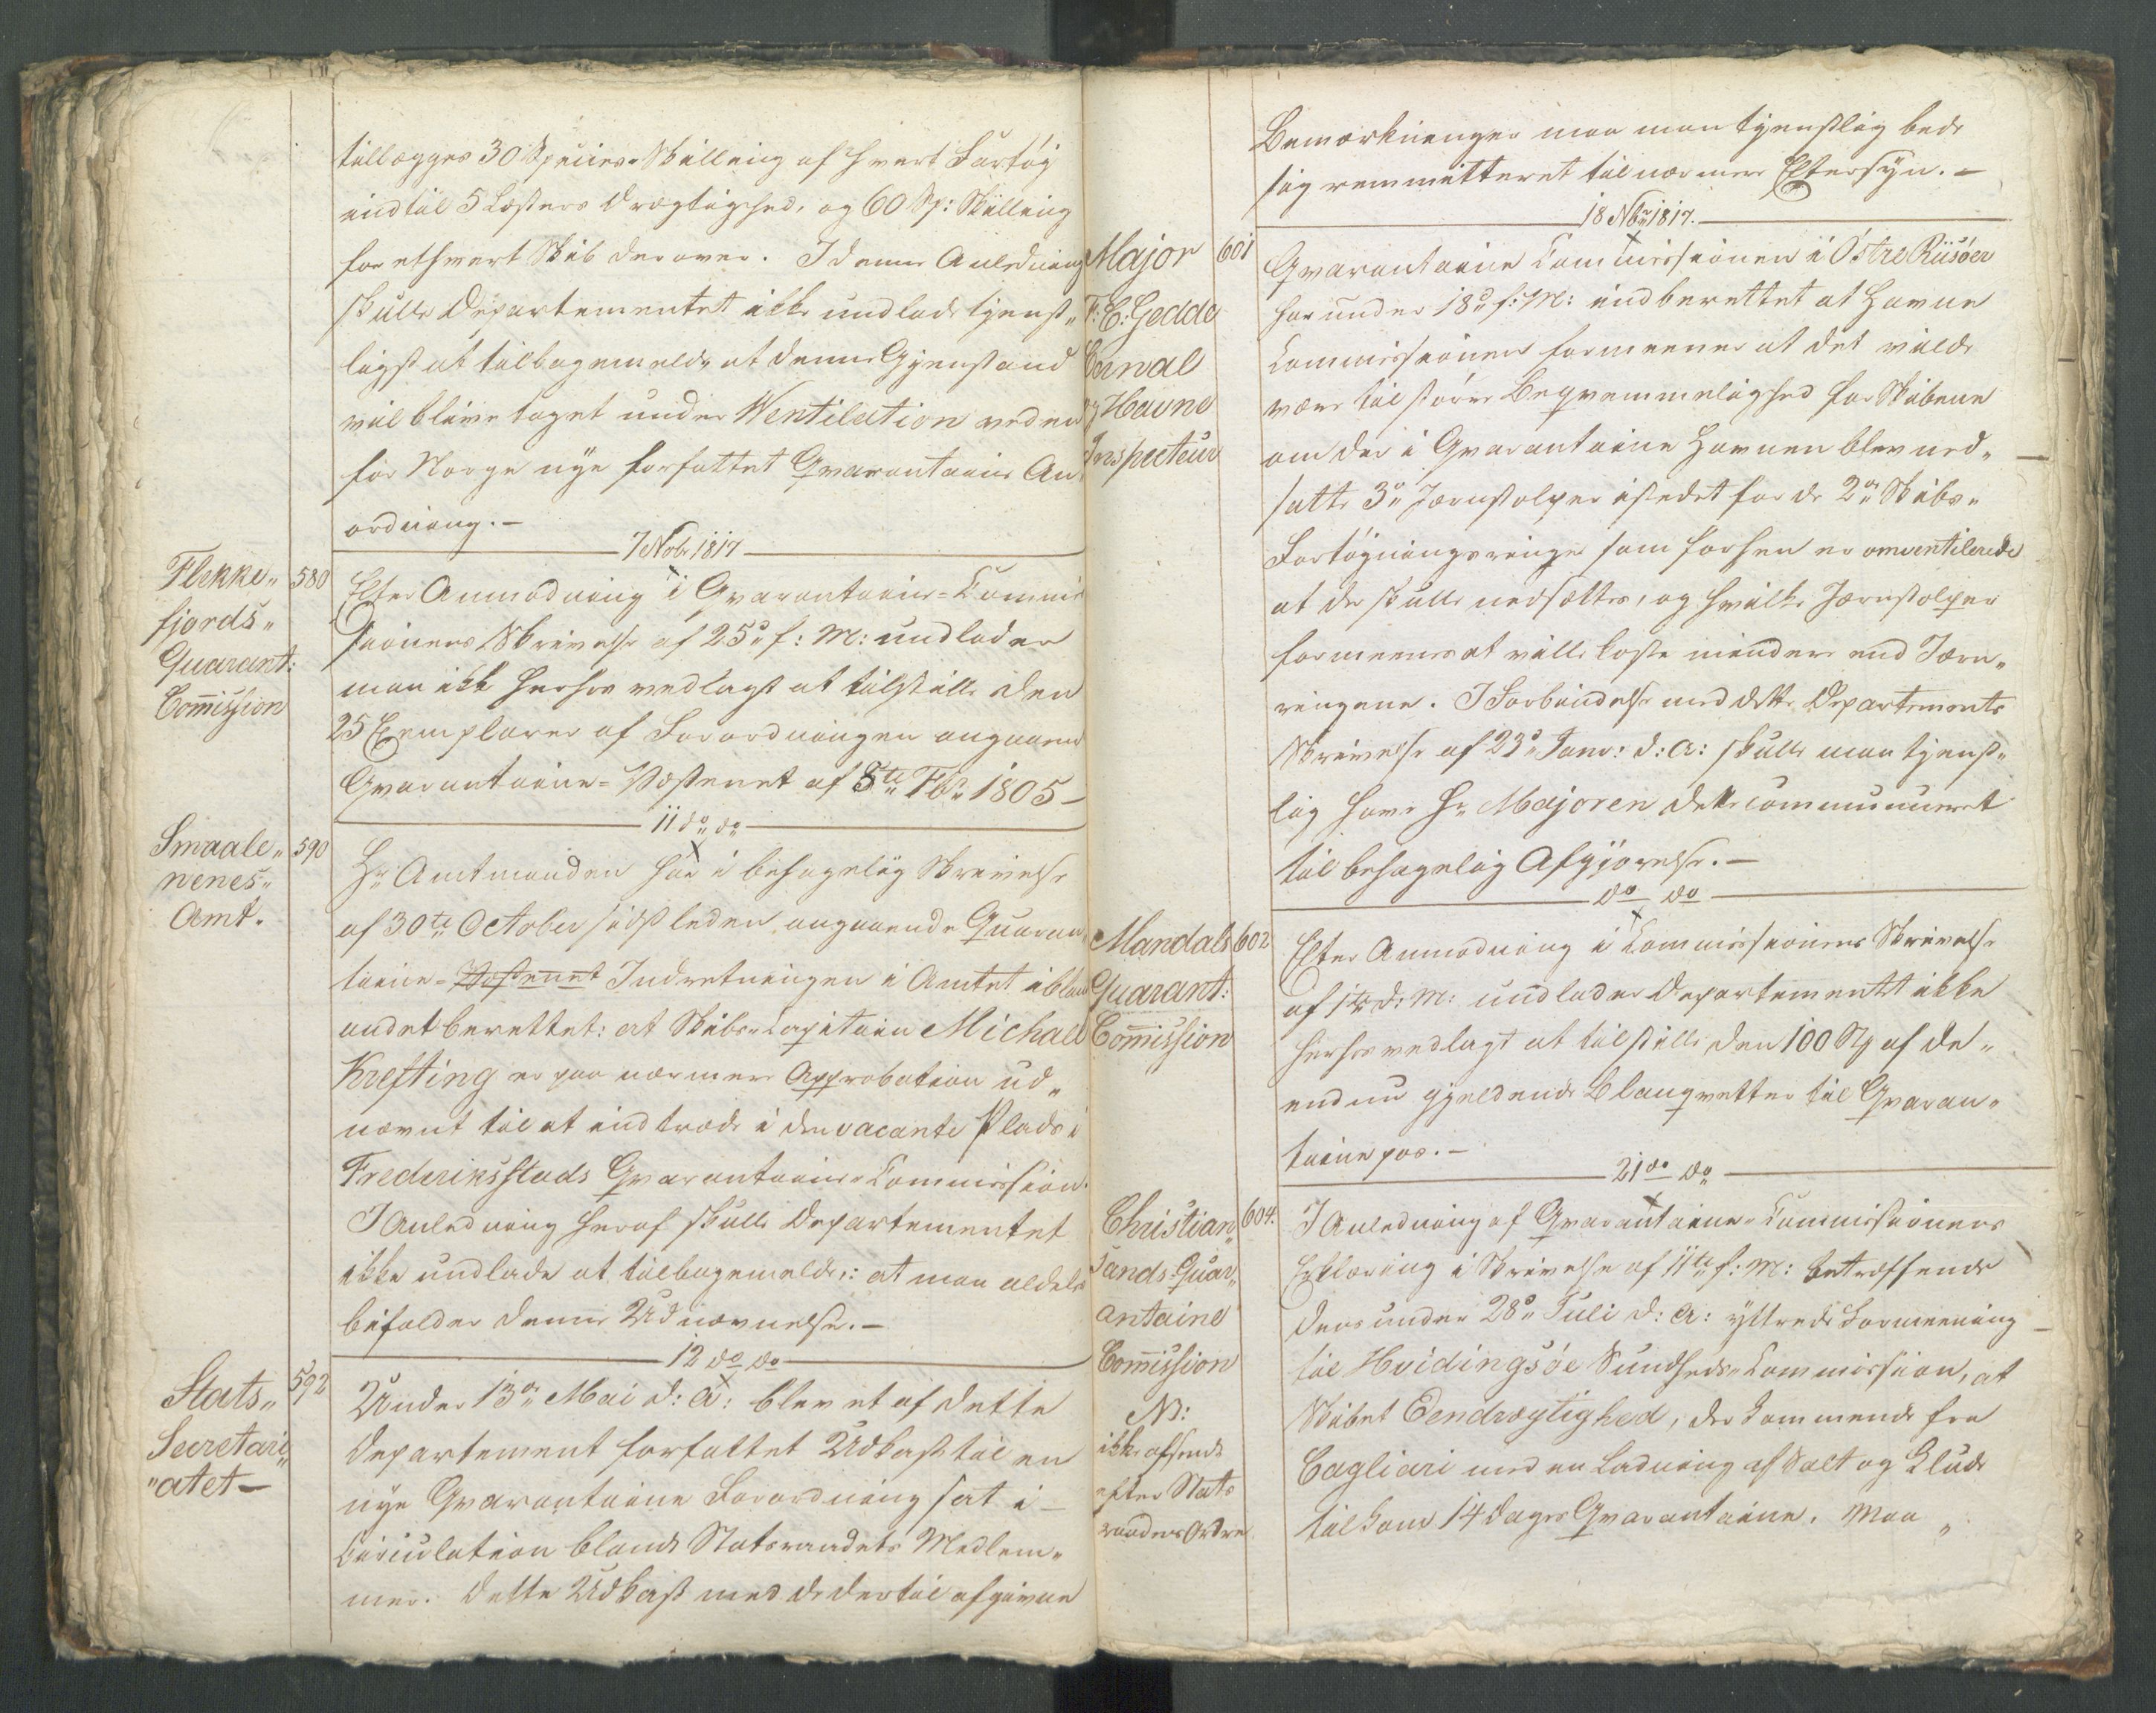 tillægges 30 Species-Skilling af hvert Fartøj
indtil 5 Læsters Drægtighed, og 60 Sp: Skilling
for ethvert Skib derover. I denne Anledning
skulle Departementet ikke undlade tjenst„
ligst at tilbagemelde, at denne Gjenstand
vil blive taget under Ventilation ved en
for Norge nye forfattet Qvarantaine An„
ordning.–
7 Nobr 1817
Flekke„
fjords„
Quarant:
Com̄ission
580
Efter Anmodning i Qvarantaine-Commis
sionens Skrivelse af 25de f: M: undlader
man ikke herhos vedlagt at tilstille den
25 Exemplarer af Forordningen angaaende
Qvarantaine-Væsenet af 8te Fbr 1805–
11 do do
Smaale„
nenes„
Amt.
590
Hr Amtmanden har i behagelig Skrivelse
af 30te October sidstleden angaaende Quaran
taine-Væsenet Indretningen i Amtet iblandt
andet berettet: at Skibs-Capitain Michael
Krefting er paa nærmere Approbation ud„
nævnt til at indtræde i den vacante Plads i
Frederiksstads Qvarantaine-Commission.
I Anledning heraf skulle Departementet
ikke undlade at tilbagemelde: at man aldeles
bifalder denne Udnævnelse.–
12 do do
Stats„
Secretari„
„atet–
592
Under 13de Mai d: A: blev et af dette
Departement forfattet Udkast til en
nye Qvarantaine Forordning sat i
Circulation blandt Statsraadets Medlem„
mer. Dette Udkast med de dertil afgivne
Bemærkninger maa man tjenstlig bede
sig remmitteret til nærmere Eftersyn.–
18 Nbr 1817.
Major
F: C: Gedde
Berwal
og Havne
Inspecteur
601
Qvarantaine Commissionen i Østre Riisøer
har under 18de f: M: indberettet at Havne
Commissionen formeener at det vilde
være til større Beqvemmelighed for Skibene
om der i Qvarantaine Havnen blev ned„
satte 3de Jernstolper istedet for de 2de Skibs„
Fortøyningsringe som forhen er omventilerede
at de skulle nedsættes, og hvilke Jernstolper
formeenes at ville koste mindre end Jern„
ringene. I Forbindelse med dette Departements
Skrivelse af 23de Janr: d: A: skulle man tjenst„
lig have Hr Majoren dette communiceret
til behagelig Afgjørelse.–
do do
Mandals
Quarant:
Com̄ission
602
Efter Anmodning i Commissionens Skrivelse
af 1te d: M: undlader Departementet ikke
herhos vedlagt at tilstille den 100 St af de„
endnu gjeldende Blanqvetter til Qvaran„
taine pas.–
21 do do
Christian„
sands Quar„
antaine
Com̄ission
NB:
ikke afsendt
efter Stats
raadens Ordre
604.
I Anledning af Qvarantaine-Commissionens
Erklæring i Skrivelse af 11te f: M: betreffende
dens under 28de Juli d: A: yttrede Formeening
til Hvidingsøe Sundheds-Commission, at
Skibet Eendrægtighed, der kommende fra
Cagliari med en Ladning af Salt og Klude
tilkom 14 Dages Qvarantaine. Maa „